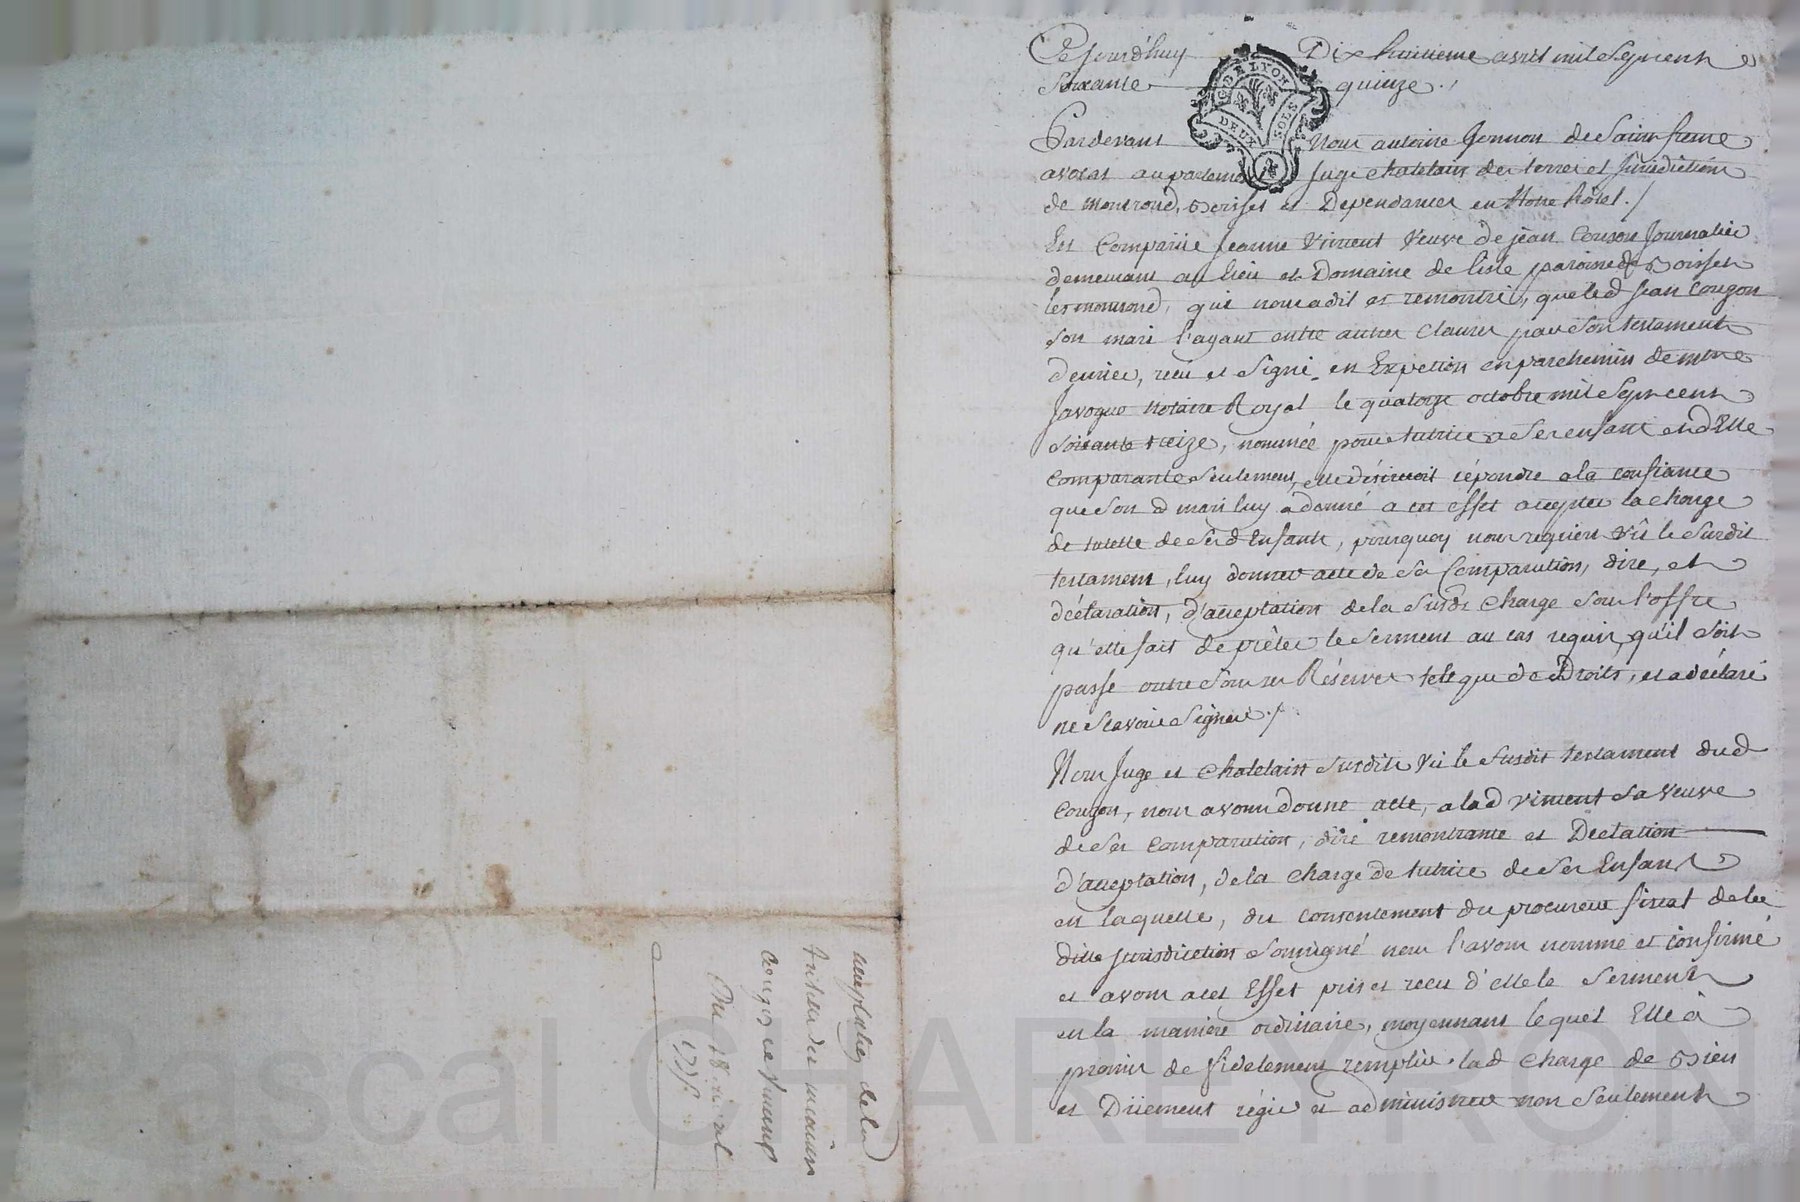 Cejourd'huy Dix huitieme avril mil Sept cent et
Soixante quinze ./
G. DE LYON
DEUX SOLS
Pardevant Nous antoine Gonnon de Saint pierre
avocat au parlement Juge chatelain des terres et Jurisdiction
de montrond, Boisset et Dependances en Notre hôtel ./
Est Comparüe Jeanne Vincent Veuve de jean Couzon Journalier
demeurant au lieu et Domaine de lisle paroisse de Boisset
les montrond, qui nous a dit et remontré, que led jean Couzon
son mari l'ayant entre autres clauses par Son testament
dernier, reçu et Signé en Expetion en parchemin de mtre
Javogue Notaire Royal le quatorze octobre mil Sept cent
Soixante treize, nommée pour tutrice a Ses enfants et d'Elle
comparante Seulement, elle désireroit répondre a la confiance
que Son d mari luy a donné a cet effet accepter la charge
de tutelle de Sesd Enfants, pourquoy nous requiert Vû le Susdit
testament, luy donner acte de Sa Comparution, dire, et
déclaration, d'acceptation de la Susde Charge Sous l'offre
qu'elle fait de prêter le Serment au cas requis, qu'il Soit
passé outre Sous ses Réserves telle que de Droits, et a déclaré
ne Scavoir Signer ./.
Nous Juge et Chatelain Susdit Vû le Susdit testament dud
Couzon, nous avons donné acte, a lad Vincent Sa Veuve
de Ses Comparution, dire remontrance et Declation
d'acceptation, de la charge de tutrice de Ses Enfants
en laquelle, du consentement du procureur fiscal de la
ditte Jurisdiction Soussigné nous l'avons nommé et confirmé
et avons a cet Effet pris et reçu d'elle le Serment
en la maniere ordinaire, moyennant lequel Elle à
promis de fidelement remplir lad charge de Bien
et Düement régir et administrer non Seulement
acceptation de la
tutelle des mineurs
couzon et Vincent
Du 18 avril
1775
Pascal CHAREYRON